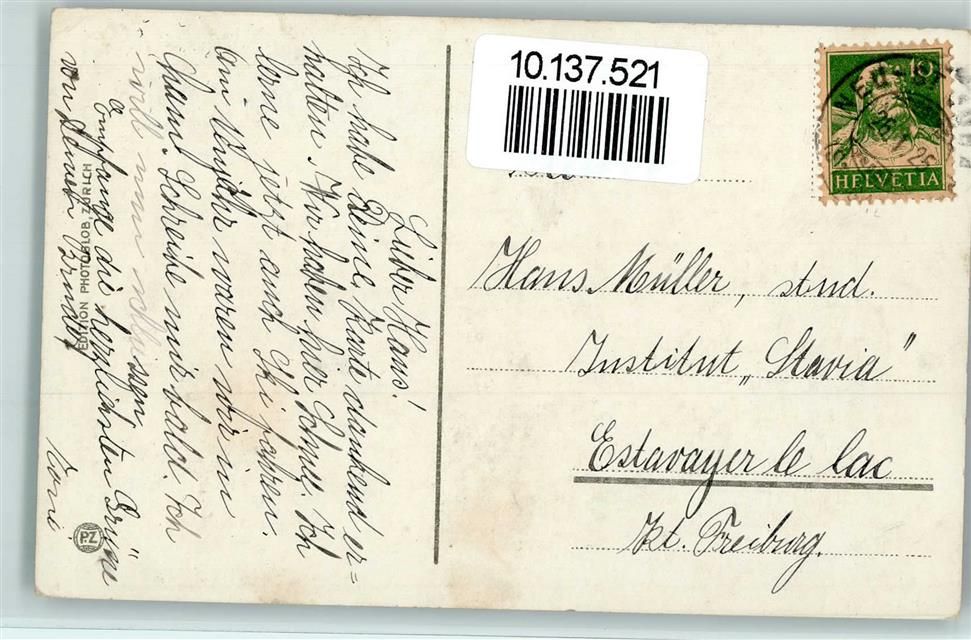 Lieber Hans!
Ich habe Deine Karte dankend er=
halten. Wir haben hier Schnee. Ich
lerne jetzt auch Ski fahren.
am waren wir in
Cham. Schreibe mir bald. Ich
will nun schliessen.
Empfange die herzlichsten Grüsse
von Deinem Bruder
Toni
EDITION PHOTOGLOB, ZÜRICH
PZ
10.137.521
10
HELVETIA
Hans Müller, stud.
Institut „Stavia"
Estavayer le lac
Kt. Freiburg.